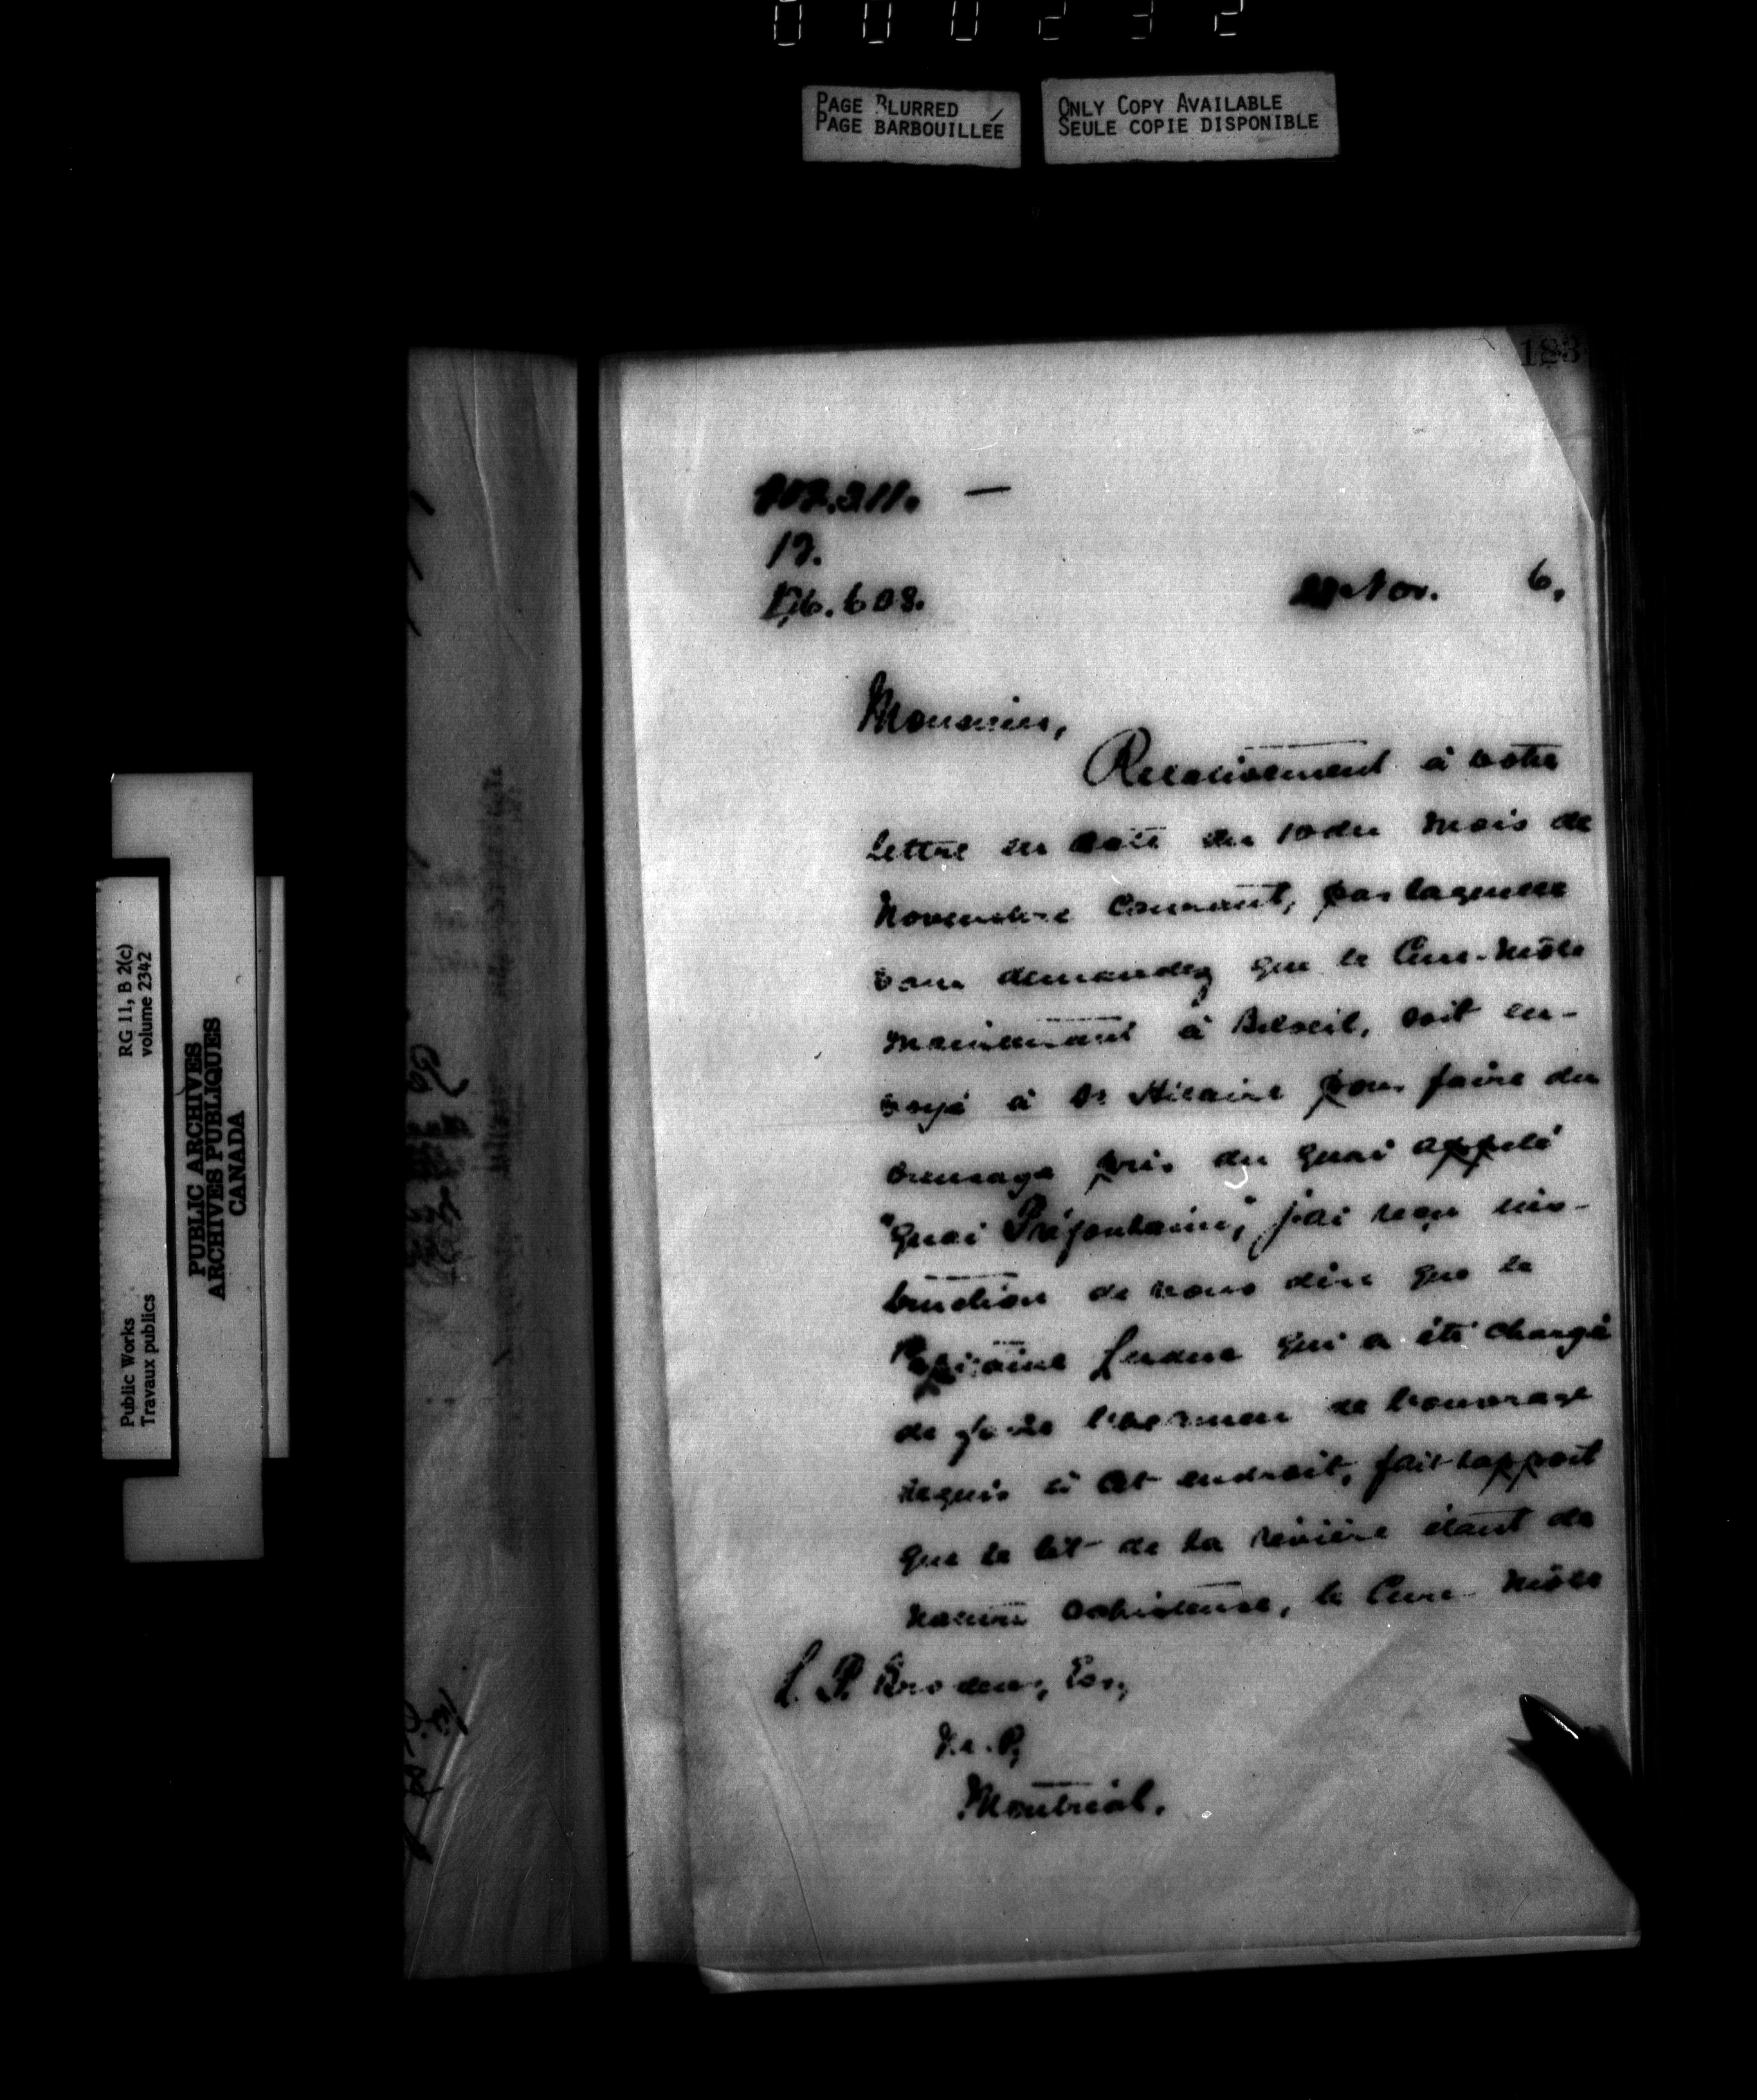 000232
PAGE BLURRED
PAGE BARBOUILLÉE
ONLY COPY AVAILABLE
SEULE COPIE DISPONIBLE
183
17.
176.608.
Nov. 6,
Monsieur,
Relativement à votre
lettre en date du 10 du mois de
Novembre courant, par laquelle
vous demandez que le Cure-Môle
maintenant à Beloeil, soit en-
voyé à St Hilaire pour faire du
creusage près du quai appelé
"Quai Préfontaine," j'ai reçu ins-
truction de vous dire que le
Capitaine qui a été chargé
de faire l'examen de l'ouvrage
requis à cet endroit, fait rapport
que le lit de la rivière étant de
nature schisteuse, le Cure-Môle
L. P. Brodeur, Esq,
M.P,
Montréal.
Public Works
Travaux publics
RG 11, B 2(c)
volume 2342
PUBLIC ARCHIVES
ARCHIVES PUBLIQUES
CANADA